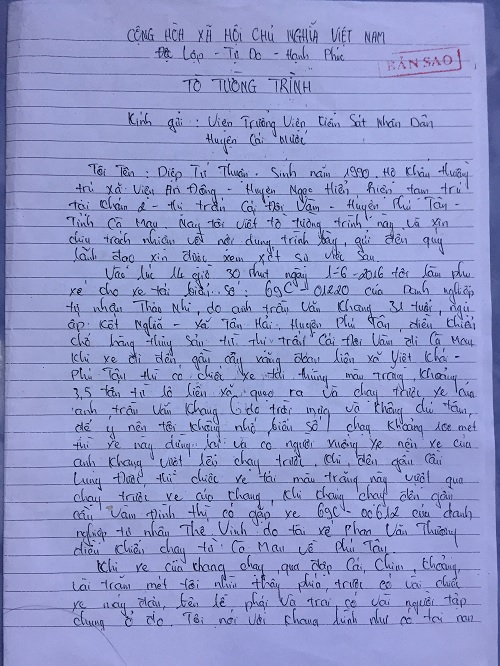 CỘNG HÒA XÃ HỘI CHỦ NGHĨA VIỆT NAM
Độc Lập - Tự Do - Hạnh Phúc
BẢN SAO
TỜ TƯỜNG TRÌNH
Kính gửi : Viện Trưởng Viện Kiểm Sát Nhân Dân
Huyện Cái Nước
Tôi Tên : Diệp Tú Thuận. Sinh năm 1990. Hộ Khẩu thường
trú xã Viên An Đông - Huyện Ngọc Hiển, hiện tạm trú
tại Khóm 2 - thị trấn Cái Đôi Vàm - Huyện Phú Tân -
Tỉnh Cà Mau. Nay tôi viết tờ tường trình này và xin
chịu trách nhiệm với nội dung trình bày, gửi đến quý
lãnh đạo xin được xem xét sự việc sau.
Vào lúc 14 giờ 30 phút ngày 1-6-2016 tôi làm phụ
xế cho xe tải biển số : 69C - 01220 của Danh nghiệp
tư nhân Thảo Nhi, do anh trần Văn Khang 31 tuổi, ngụ
ấp Kết Nghĩa - Xã Tân Hải, Huyện Phú Tân, điều khiển
chở hàng thủy sản từ thị trấn Cái Đôi Vàm đi Cà Mau
Khi xe đi đến gần cây xăng đoạn liên xã Việt Khái -
Phú Tân thì có chiếc xe tải thùng màu trắng, Khoảng
3,5 tấn từ lộ liên xã quẹo ra và chạy trước xe của
anh trần Văn Khang (do trời mưa và không chú tâm,
để ý nên tôi không nhớ biển số) chạy khoảng 100 mét
thì xe này dừng lại và có người xuống xe nên xe của
anh Khang vượt lên chạy trước. Khi đến gần cầu
Lung Đước thì chiếc xe tải màu trắng này vượt qua
chạy trước xe của Khang, Khi Khang chạy đến gần
cầu Vàm Đình thì có gặp xe 69C - 00612 của danh
nghiệp tư nhân Thế Vinh do tài xế Phan Văn Thường
điều khiển chạy từ Cà Mau về Phú Tân.
Khi xe của Khang chạy qua đập Cái Chim, khoảng
vài trăm mét tôi nhìn thấy phía trước có vài chiếc
xe máy đậu, bên lề phải và trái có vài người tập
chung ở đó. Tôi nói với Khang hình như có tai nạn